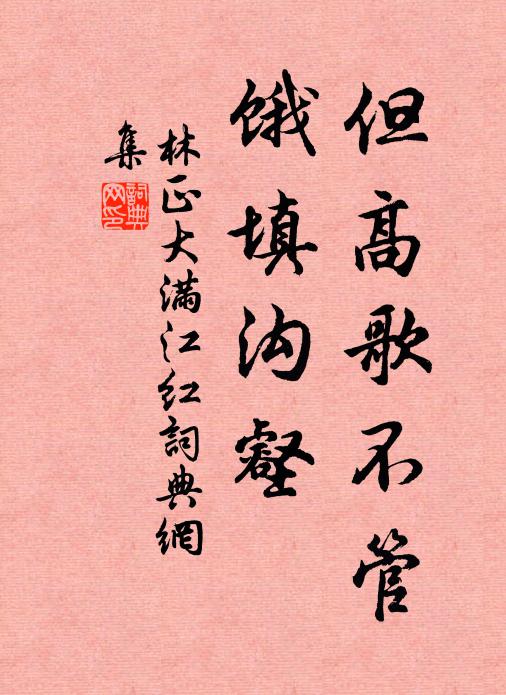 但高歌不管
饿填沟壑
林正大满江红詞典網
集
詞典
网印